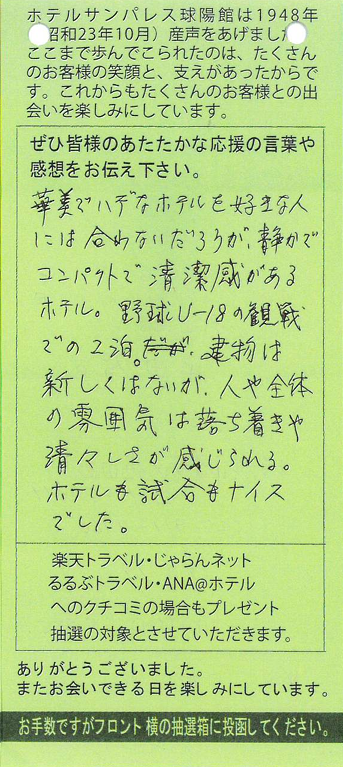 ホテルサンパレス球陽館は1948年
昭和23年10月）産声をあげました
ここまで歩んでこられたのは、たくさん
のお客様の笑顔と、支えがあったからで
す。これからもたくさんのお客様との出
会いを楽しみにしています。
ぜひ皆様のあたたかな応援の言葉や
感想をお伝え下さい。
華美でハデなホテルを好きな人
には合わないだろうが、静かで
コンパクトで清潔感がある
ホテル。野球U-18の観戦
での2泊。だが、建物は
新しくはないが、人や全体
の雰囲気は落ち着きや
清々しさが感じられる。
ホテルも試合もナイス
でした。
楽天トラベル・じゃらんネット
るるぶトラベル・ANA@ホテル
へのクチコミの場合もプレゼント
抽選の対象とさせていただきます。
ありがとうございました。
またお会いできる日を楽しみにしています。
お手数ですがフロント横の抽選箱に投函してください。